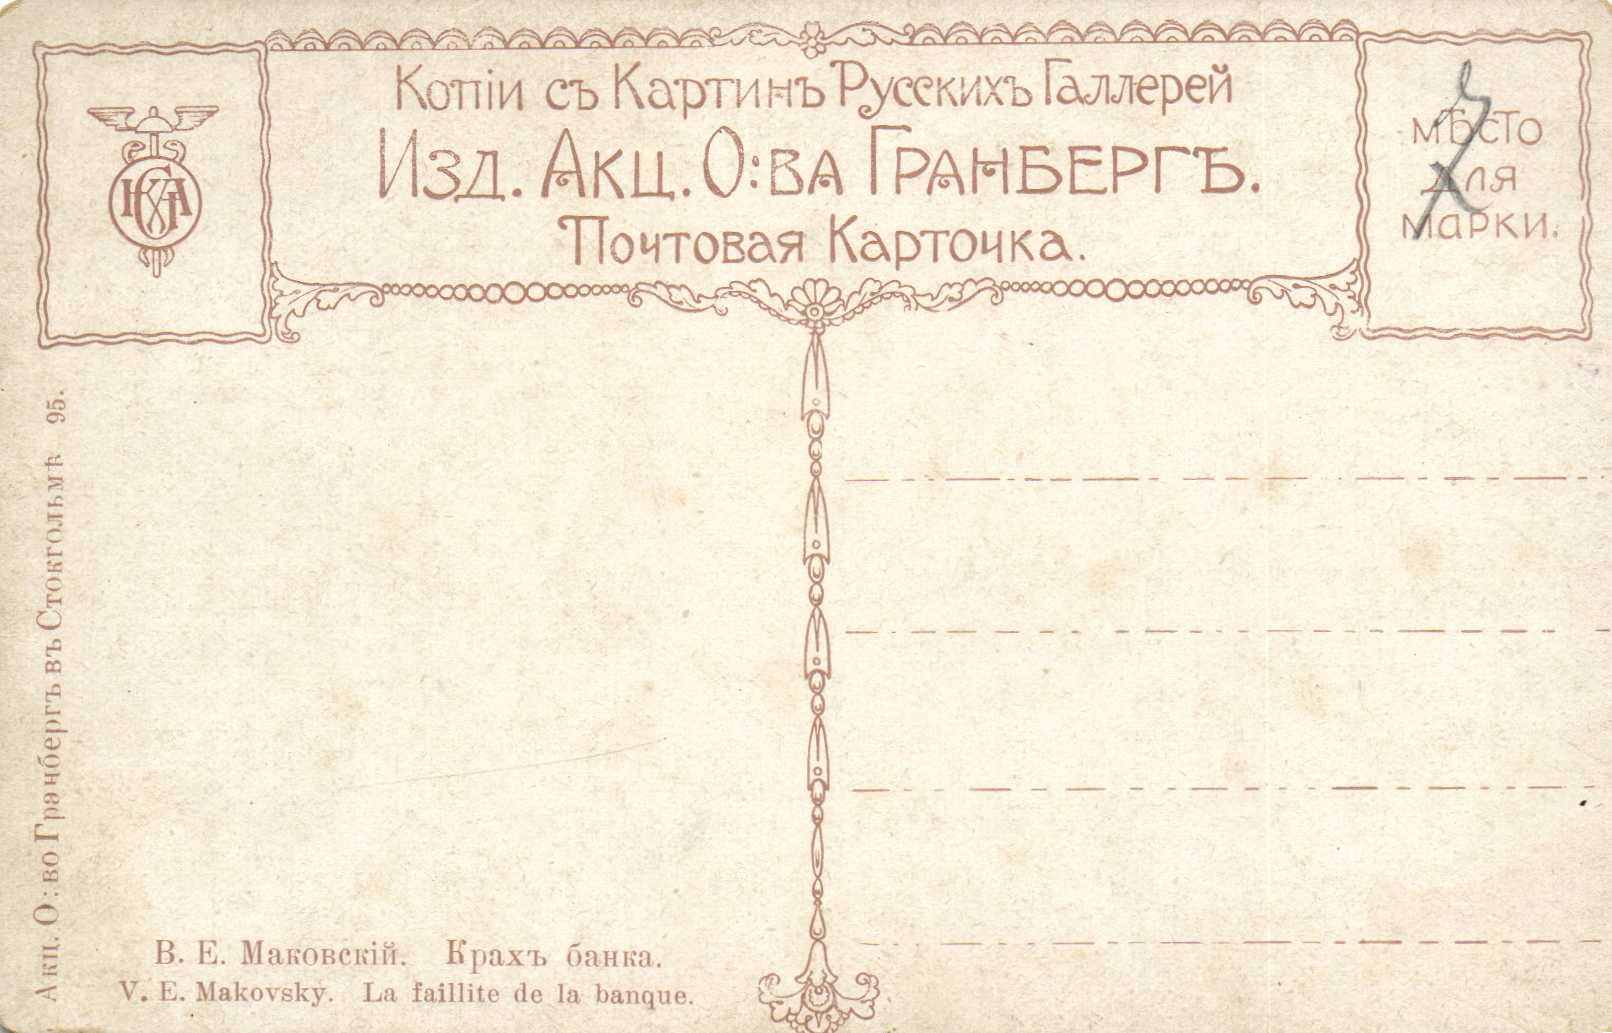 Копіи съ Картинъ Русскихъ Галлерей
Изд. Акц. О:ва Гранбергъ.
Почтовая Карточка.
мѣсто
для
марки.
Акц. О:во Гранбергъ въ Стокгольмѣ 95.
В. Е. Маковскій. Крахъ банка.
V. E. Makovsky. La faillite de la banque.